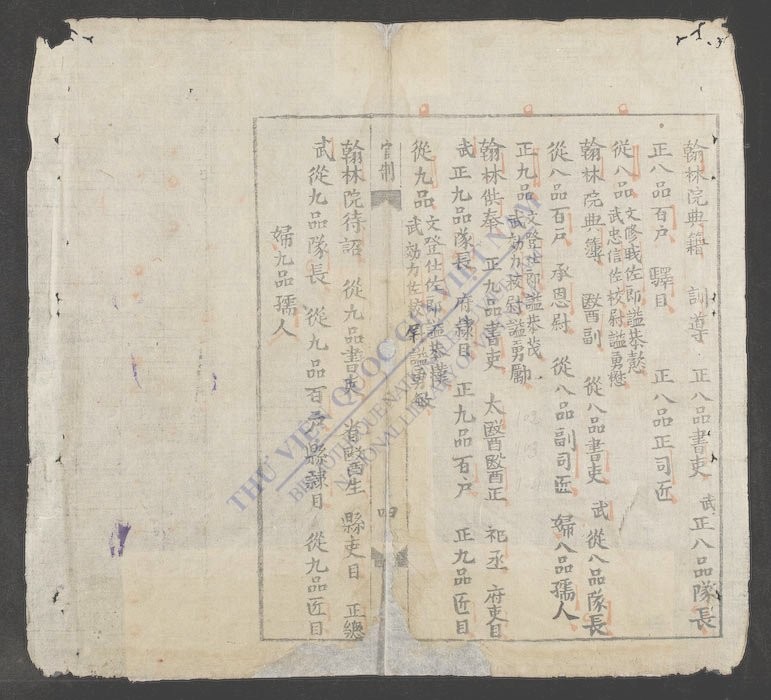 翰林院典籍 訓導 正八品書吏 武正八品隊長
正八品百戶 驛目 正八品正司匠
從八品 文修職佐郎謚恭懿
武忠信佐校尉謚勇懋
翰林院典簿 醫副 從八品書吏 武從八品隊長
從八品百戶 承恩尉 從八品副司匠 婦八品孺人
正九品 文登仕郎謚恭茂
武効力校尉謚勇勵
翰林供奉 正九品書吏 太醫醫正 祀丞 府吏目
武正九品隊長 府隸目 正九品百戶 正九品匠目
從九品 文登仕佐郎謚恭樸
武効力佐校尉謚勇敏
官制
四
翰林院待詔 從九品書吏 省醫生 縣吏目 正總
武從九品隊長 從九品百戶 縣隸目 從九品匠目
婦九品孺人
THƯ VIỆN QUỐC GIA VIỆT NAM
BIBLIOTHÈQUE NATIONALE DU VIETNAM
NATIONAL LIBRARY OF VIETNAM